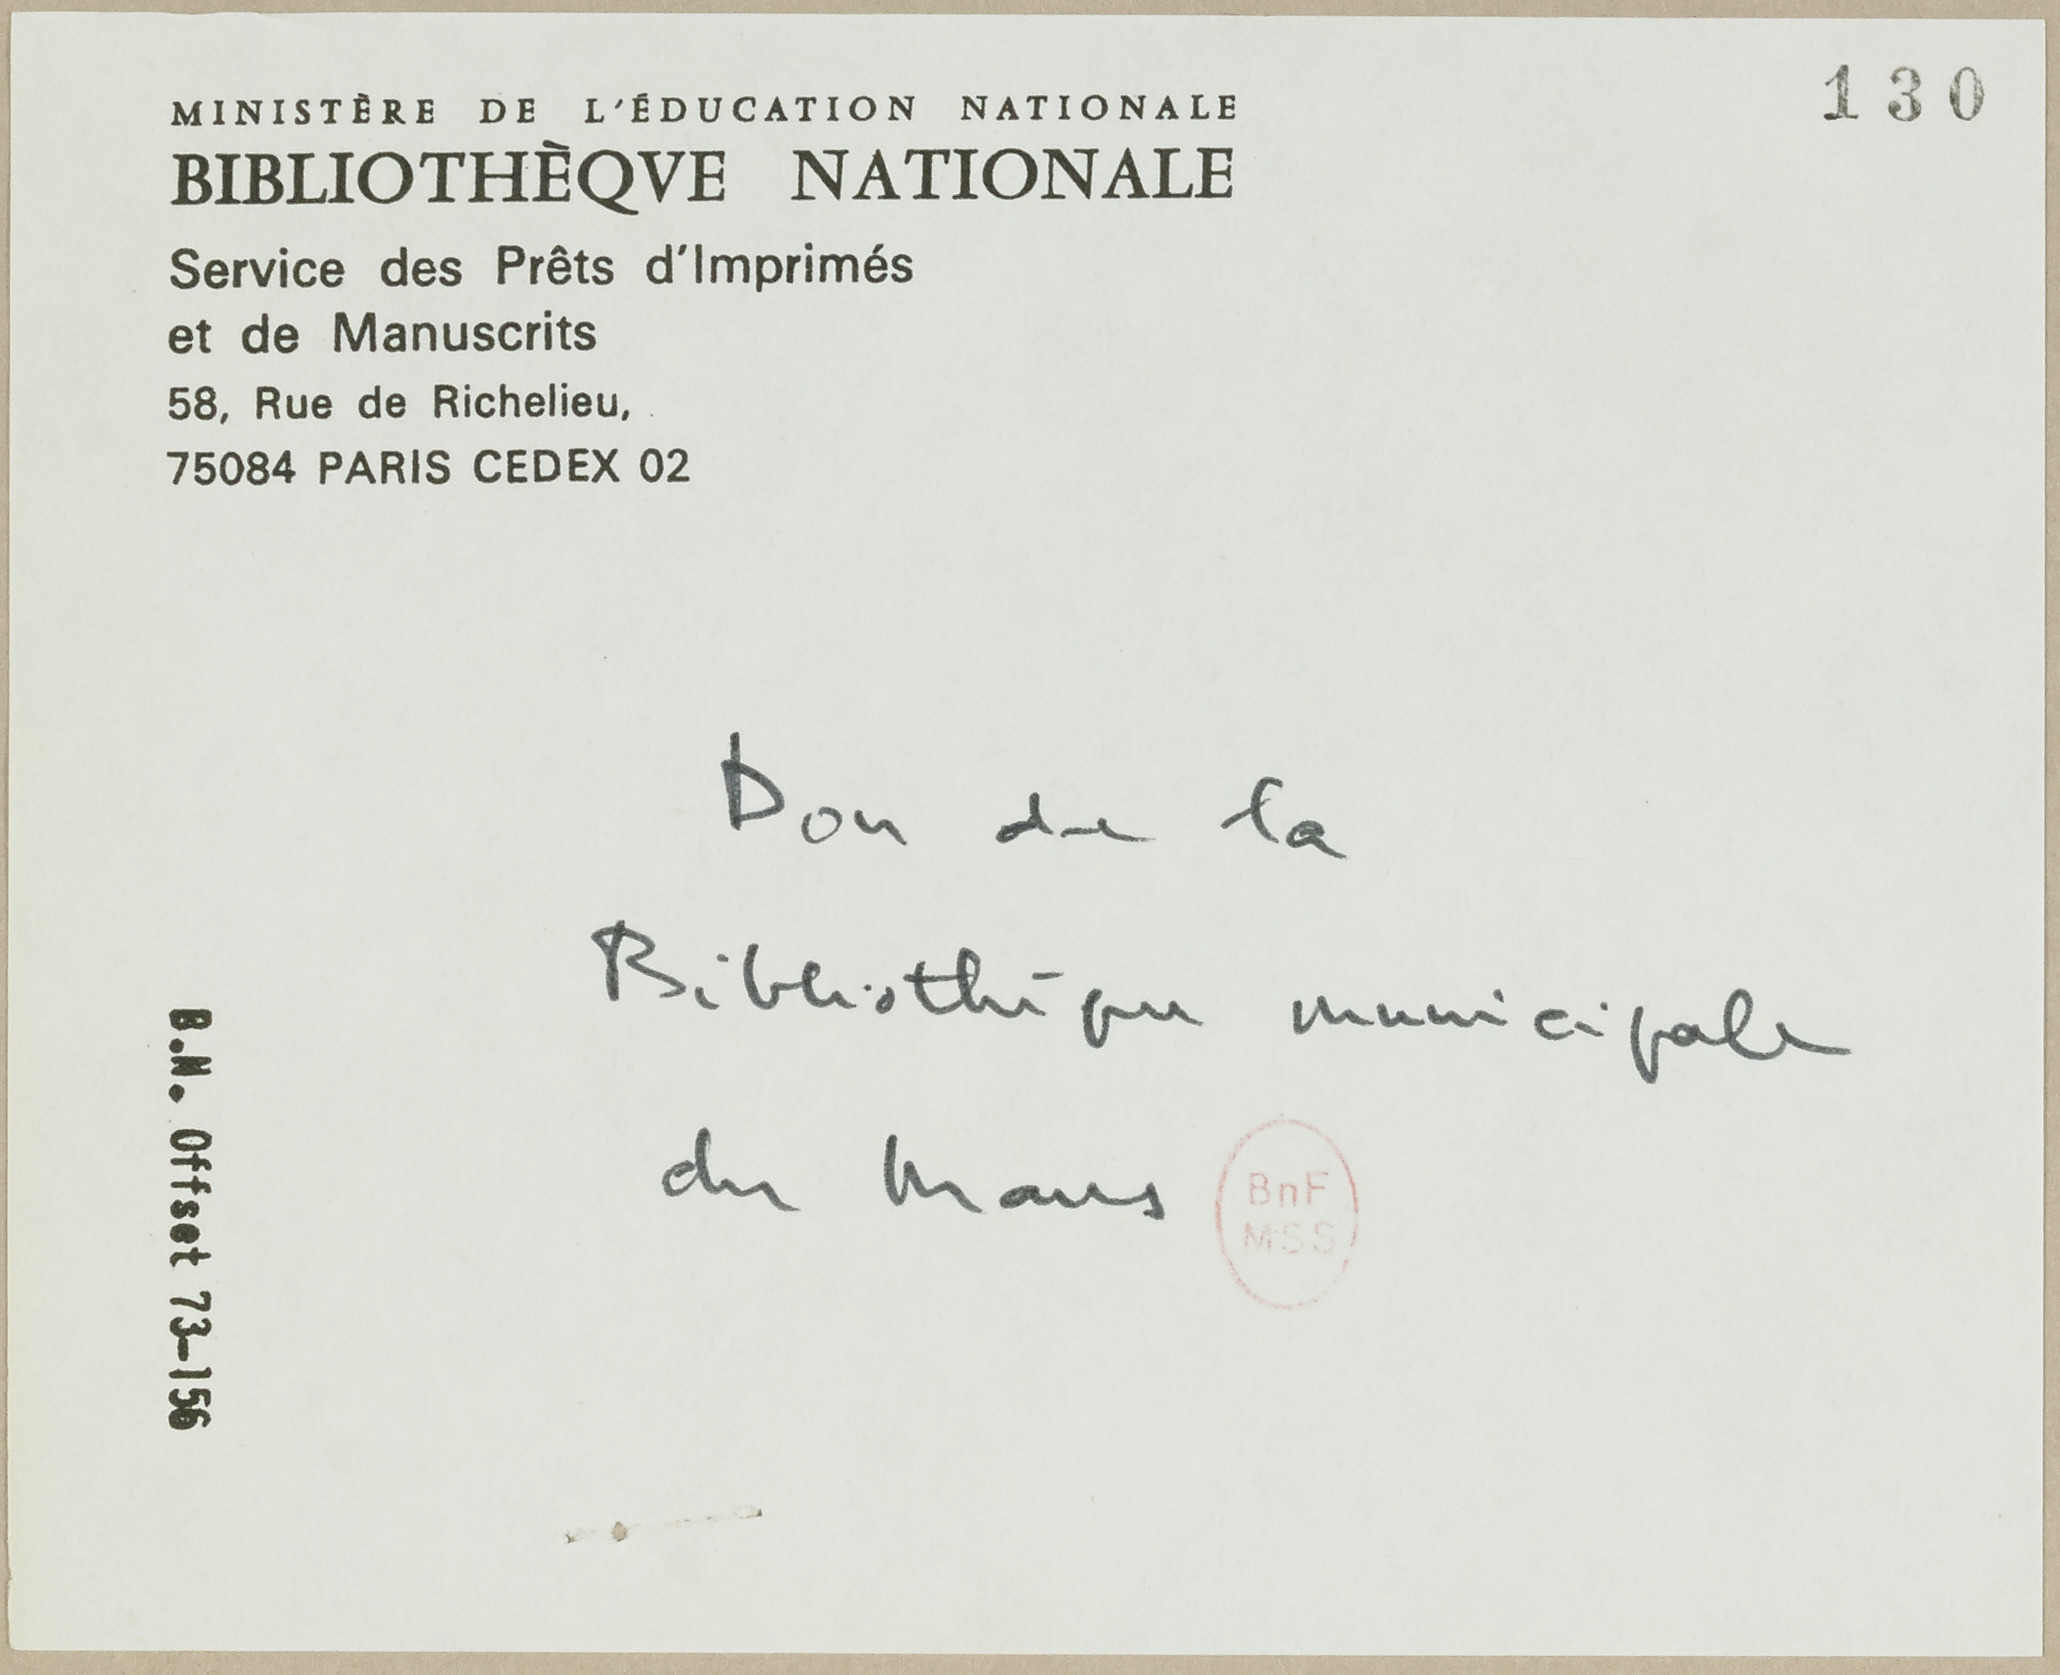 130
MINISTÈRE DE L'ÉDUCATION NATIONALE
BIBLIOTHÈQVE NATIONALE
Service des Prêts d'Imprimés
et de Manuscrits
58, Rue de Richelieu,
75084 PARIS CEDEX 02
Don de la
Bibliothèque municipale
du Mans
BnF
MSS
B.N. Offset 73-156